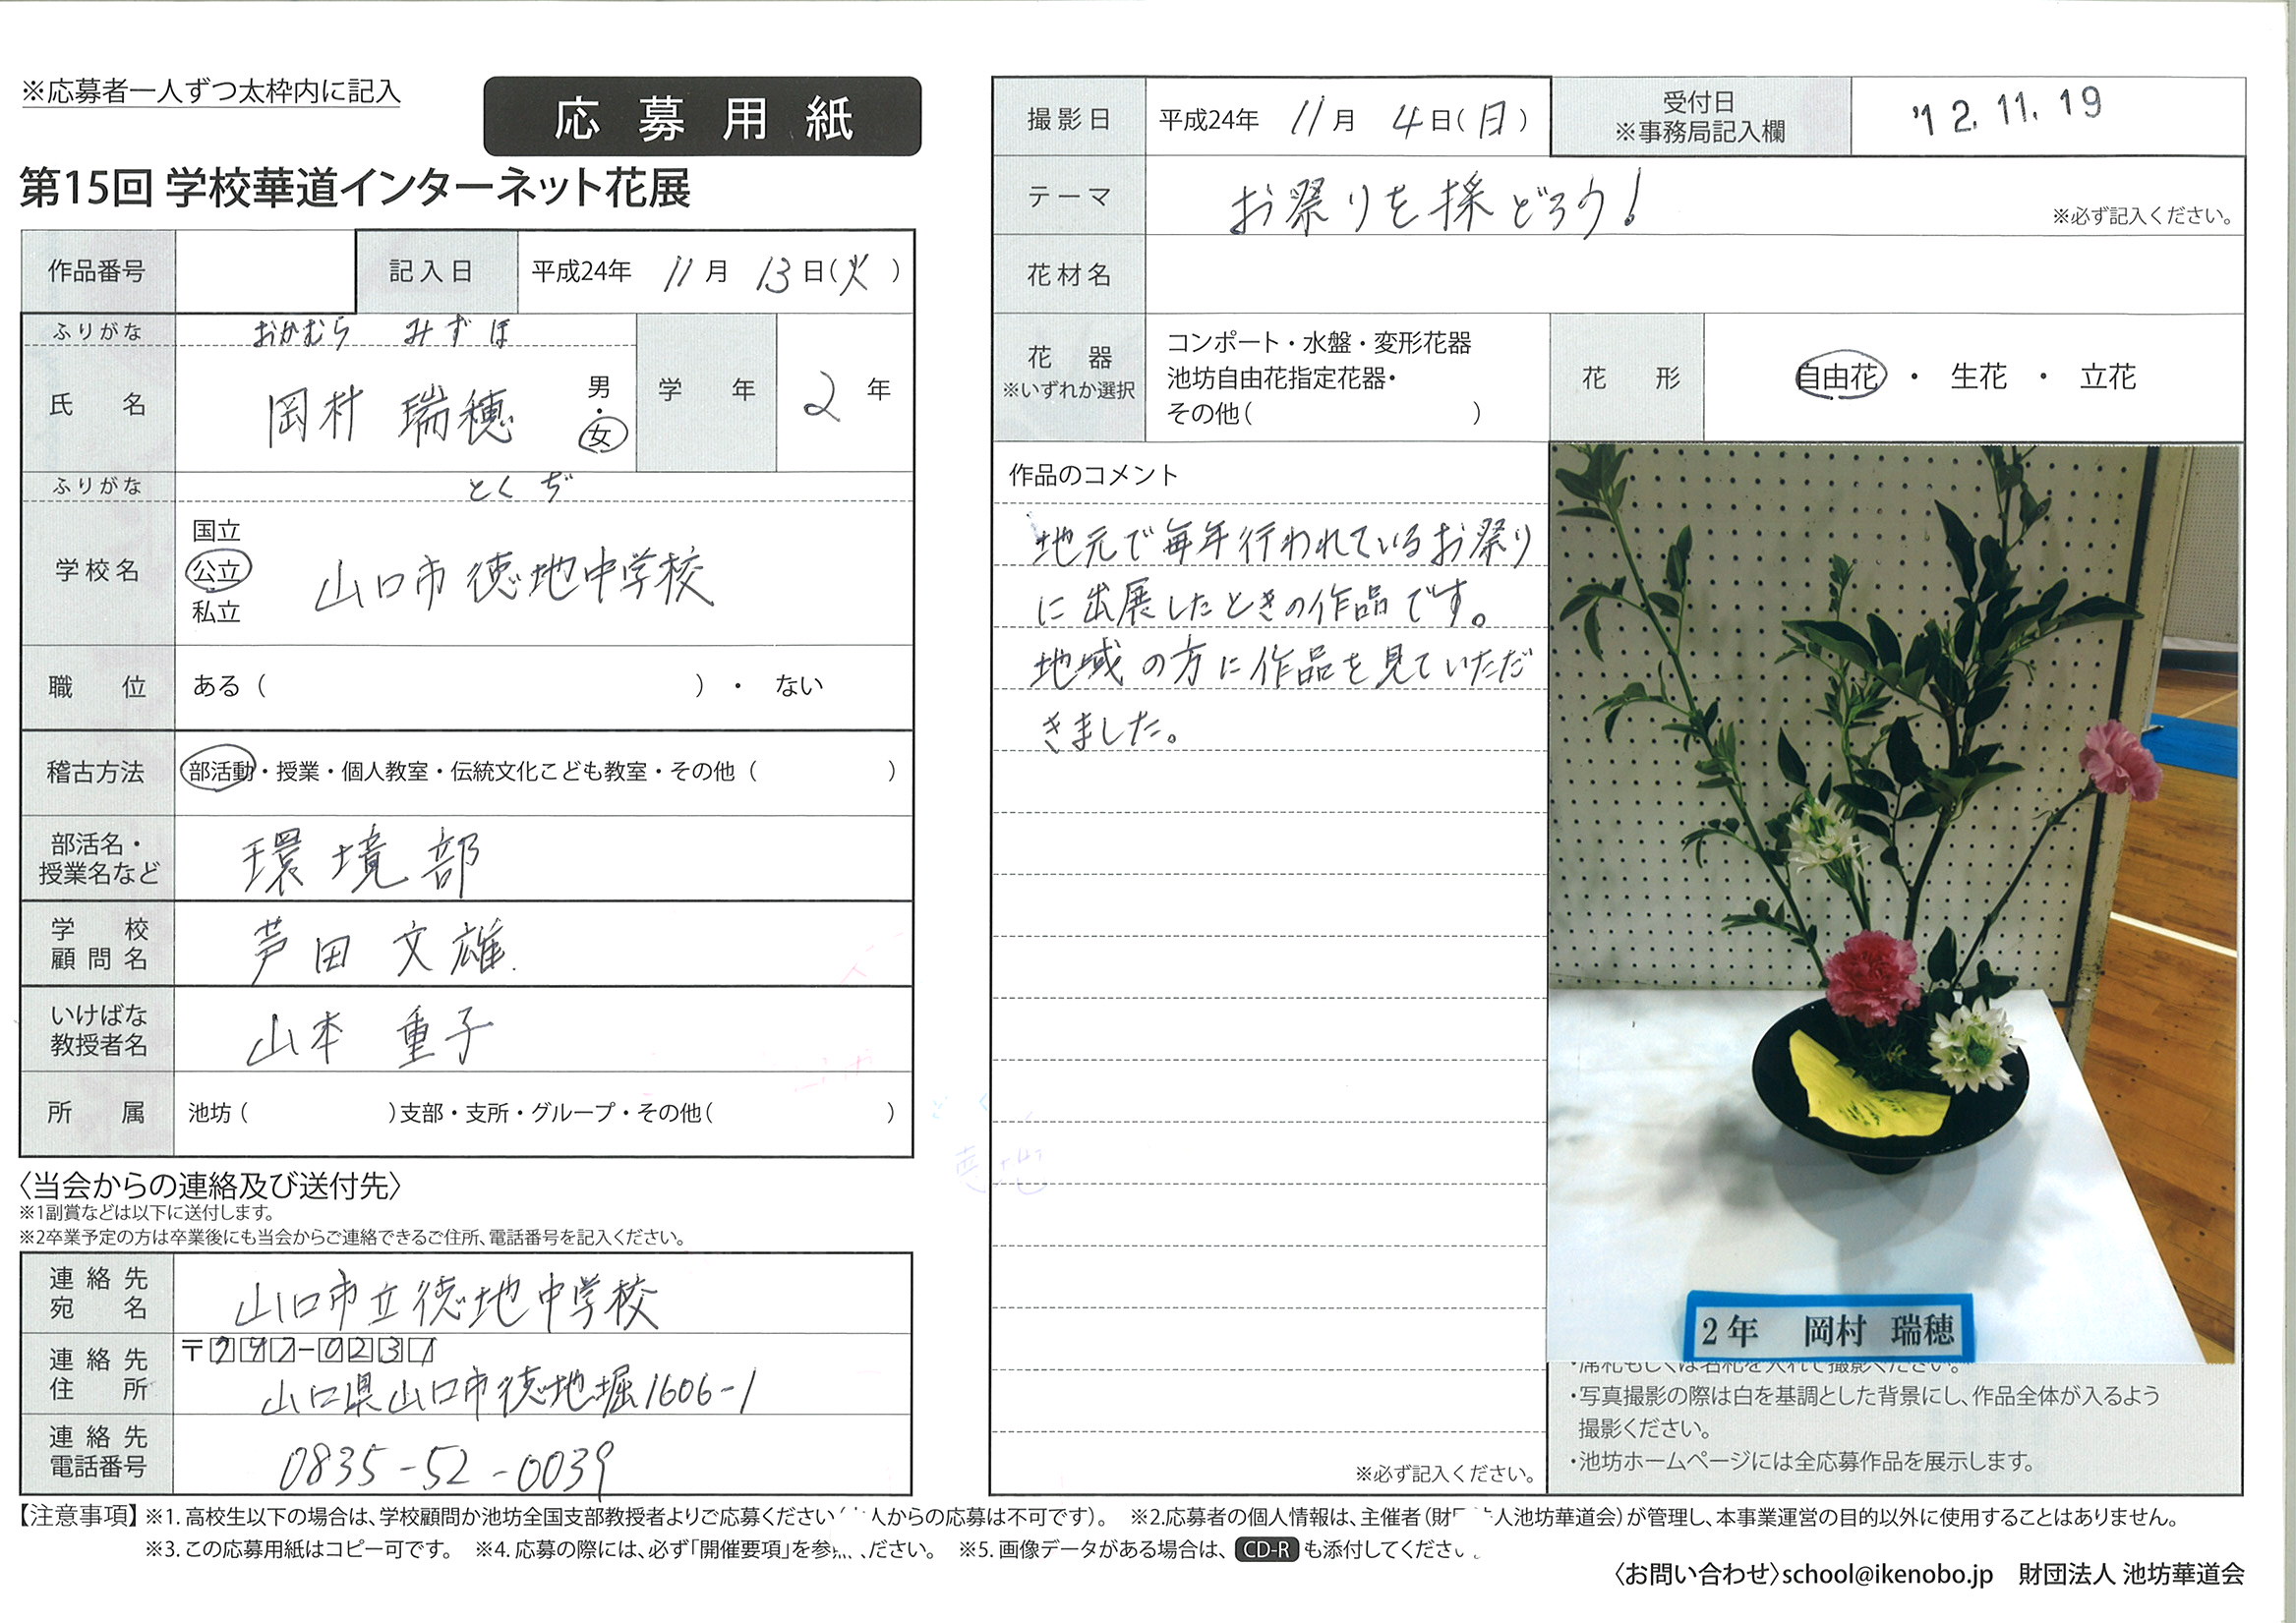 ※応募者一人ずつ太枠内に記入
応募用紙
第15回 学校華道インターネット花展
作品番号
記入日 平成24年 11月 13日(火)
ふりがな おかむら みずほ
氏名 岡村 瑞穂 男・女
学年 2年
ふりがな とくぢ
学校名 国立 公立 私立 山口市徳地中学校
職位 ある( )・ ない
稽古方法 部活動・授業・個人教室・伝統文化こども教室・その他( )
部活名・授業名など 環境部
学校顧問名 芦田 文雄
いけばな教授者名 山本 重子
所属 池坊( )支部・支所・グループ・その他( )
〈当会からの連絡及び送付先〉
※1副賞などは以下に送付します。
※2卒業予定の方は卒業後にも当会からご連絡できるご住所、電話番号を記入ください。
連絡先宛名 山口市立徳地中学校
連絡先住所 〒747-0231
山口県山口市徳地堀1606-1
連絡先電話番号 0835-52-0039
撮影日 平成24年 11月 4日(日)
受付日 ※事務局記入欄 '12.11.19
テーマ お祭りを採どろう! ※必ず記入ください。
花材名
花器 ※いずれか選択
コンポート・水盤・変形花器
池坊自由花指定花器・
その他( )
花形 自由花 ・ 生花 ・ 立花
作品のコメント
地元で毎年行われているお祭り
に出展したときの作品です。
地域の方に作品を見ていただ
きました。
※必ず記入ください。
2年 岡村 瑞穂
・席札もしくは名札を入れて撮影ください。
・写真撮影の際は白を基調とした背景にし、作品全体が入るよう
撮影ください。
・池坊ホームページには全応募作品を展示します。
【注意事項】※1. 高校生以下の場合は、学校顧問か池坊全国支部教授者よりご応募ください 人からの応募は不可です)。 ※2.応募者の個人情報は、主催者(財 人池坊華道会)が管理し、本事業運営の目的以外に使用することはありません。
※3. この応募用紙はコピー可です。 ※4. 応募の際には、必ず「開催要項」を参 ださい。 ※5. 画像データがある場合は、CD-R も添付してください。
〈お問い合わせ〉school@ikenobo.jp 財団法人 池坊華道会